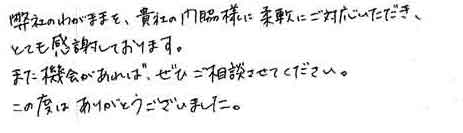 弊社のわがままを、貴社の門脇様に柔軟にご対応いただき、
とても感謝しております。
また機会があれば、ぜひご相談させてください。
この度はありがとうございました。